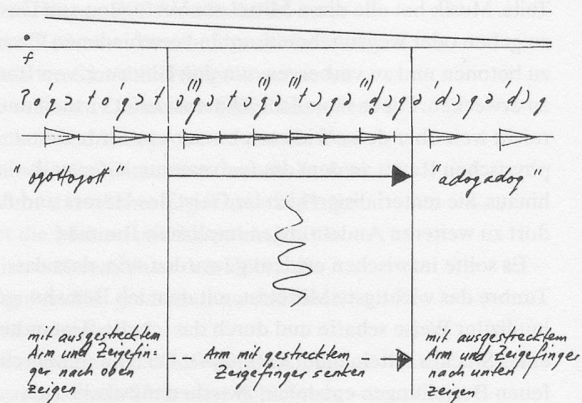 f
"ogottogott"
"adogadog"
mit ausgestrecktem
Arm und Zeigefin-
ger nach oben
zeigen
Arm mit gestrecktem
Zeigefinger senken
mit ausgestrecktem
Arm und Zeigefinger
nach unten
zeigen